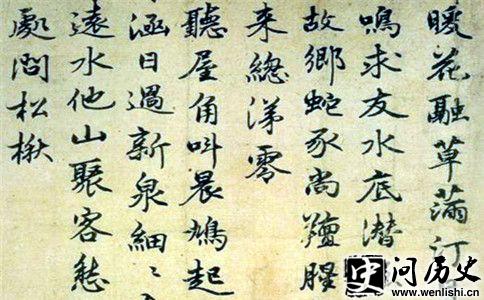 暖花融草滿汀
鳴求友水底潛
故鄉蛇豕尚羶腥
来總涕零
聽屋角叫晨鳩起
涵日過新泉細〻
遠水他山聚客愁
處問松楸
史
问历史
www.wenlishi.cn